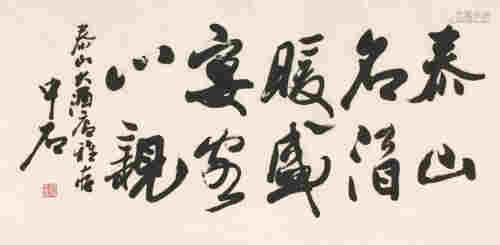 泰山
名酒
暖盛
宴客
心親
泰山大酒店雅
中石